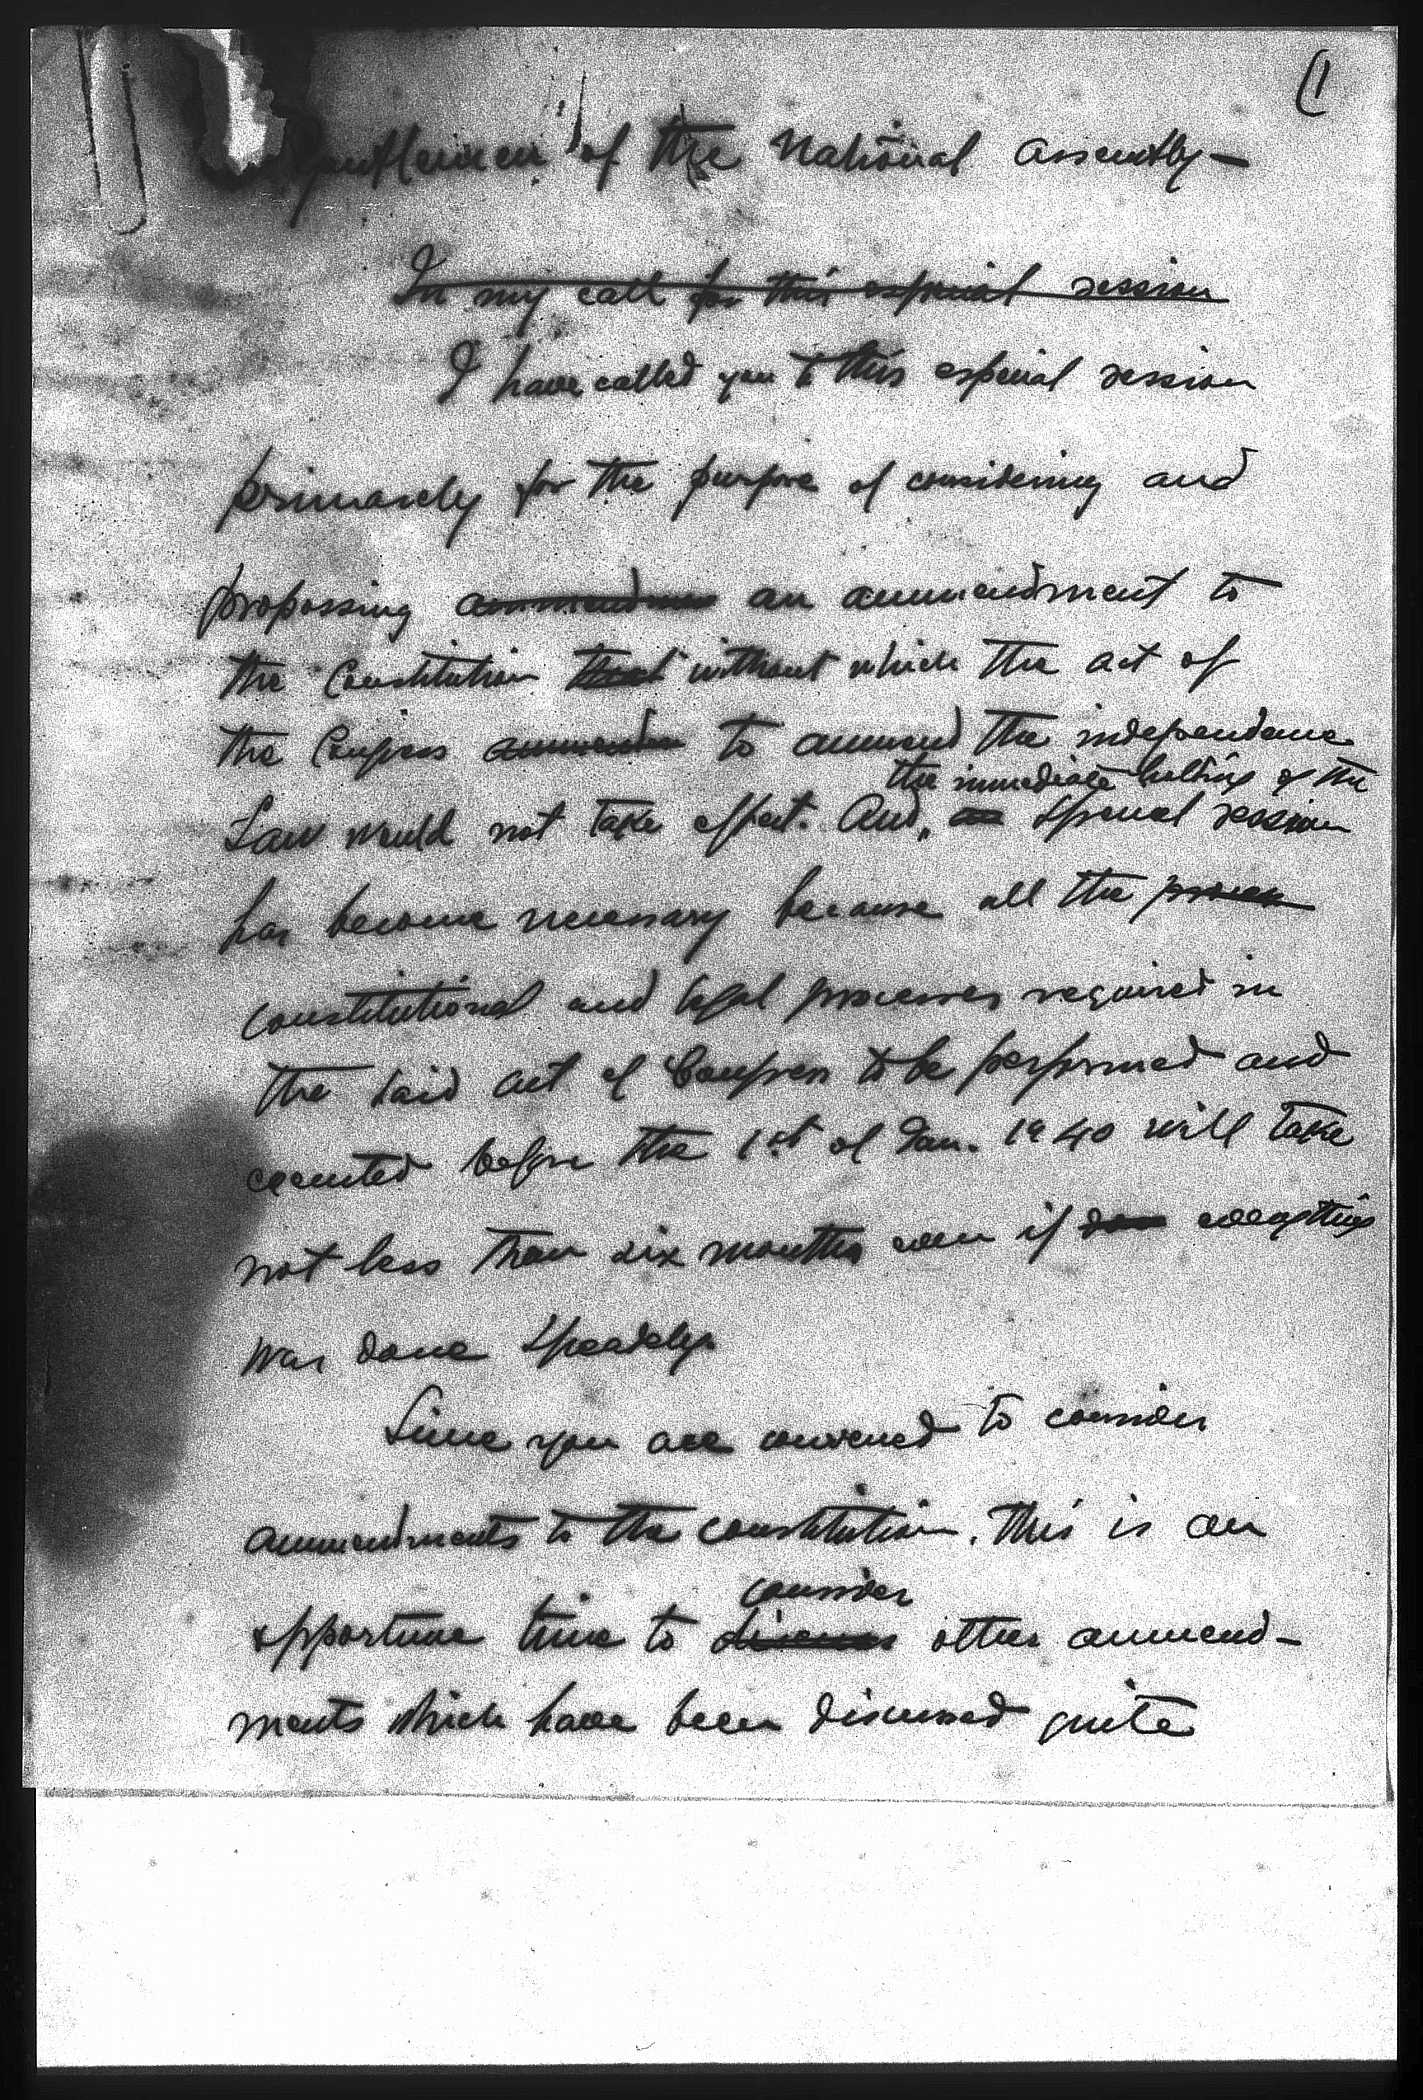 (1
Gentlemen of the National Assembly—
In my call for this especial session
I have called you to this especial session
primarely for the purpose of considering and
propossing ammendmen an ammendment to
the Constitution that without which the act of
the Congress ammenden to ammend the independence
the immediate holding of the
Law would not take effect. And, a special session
has become necessary because all the proces
constitutional and legal processes required in
the said act of Congress to be performed and
executed before the 1st of Jan. 1940 will take
not less than six months even if everything
was done speadely.
Since you are convened to consider
ammendments to the constitution, this is an
consider
opportune time to discuss other ammend-
ments which have been discussed quite